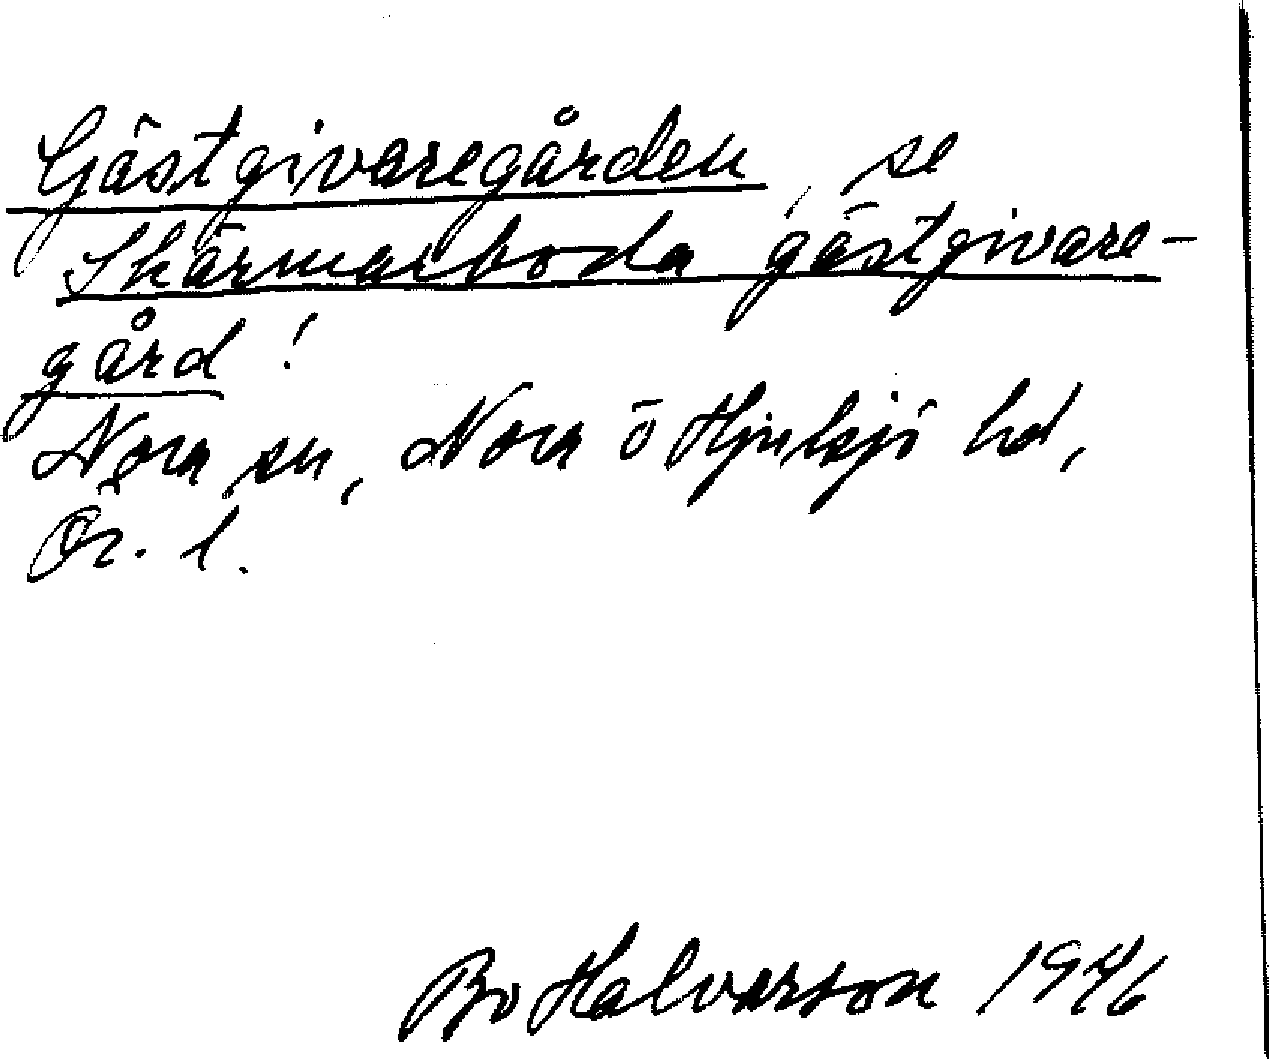 Gästgivaregården, se
Skärmarboda gästgivare-
gård!
Nora sn, Nora o Hjulsjö hd,
Ör. l.
Bo Halvarson 1946